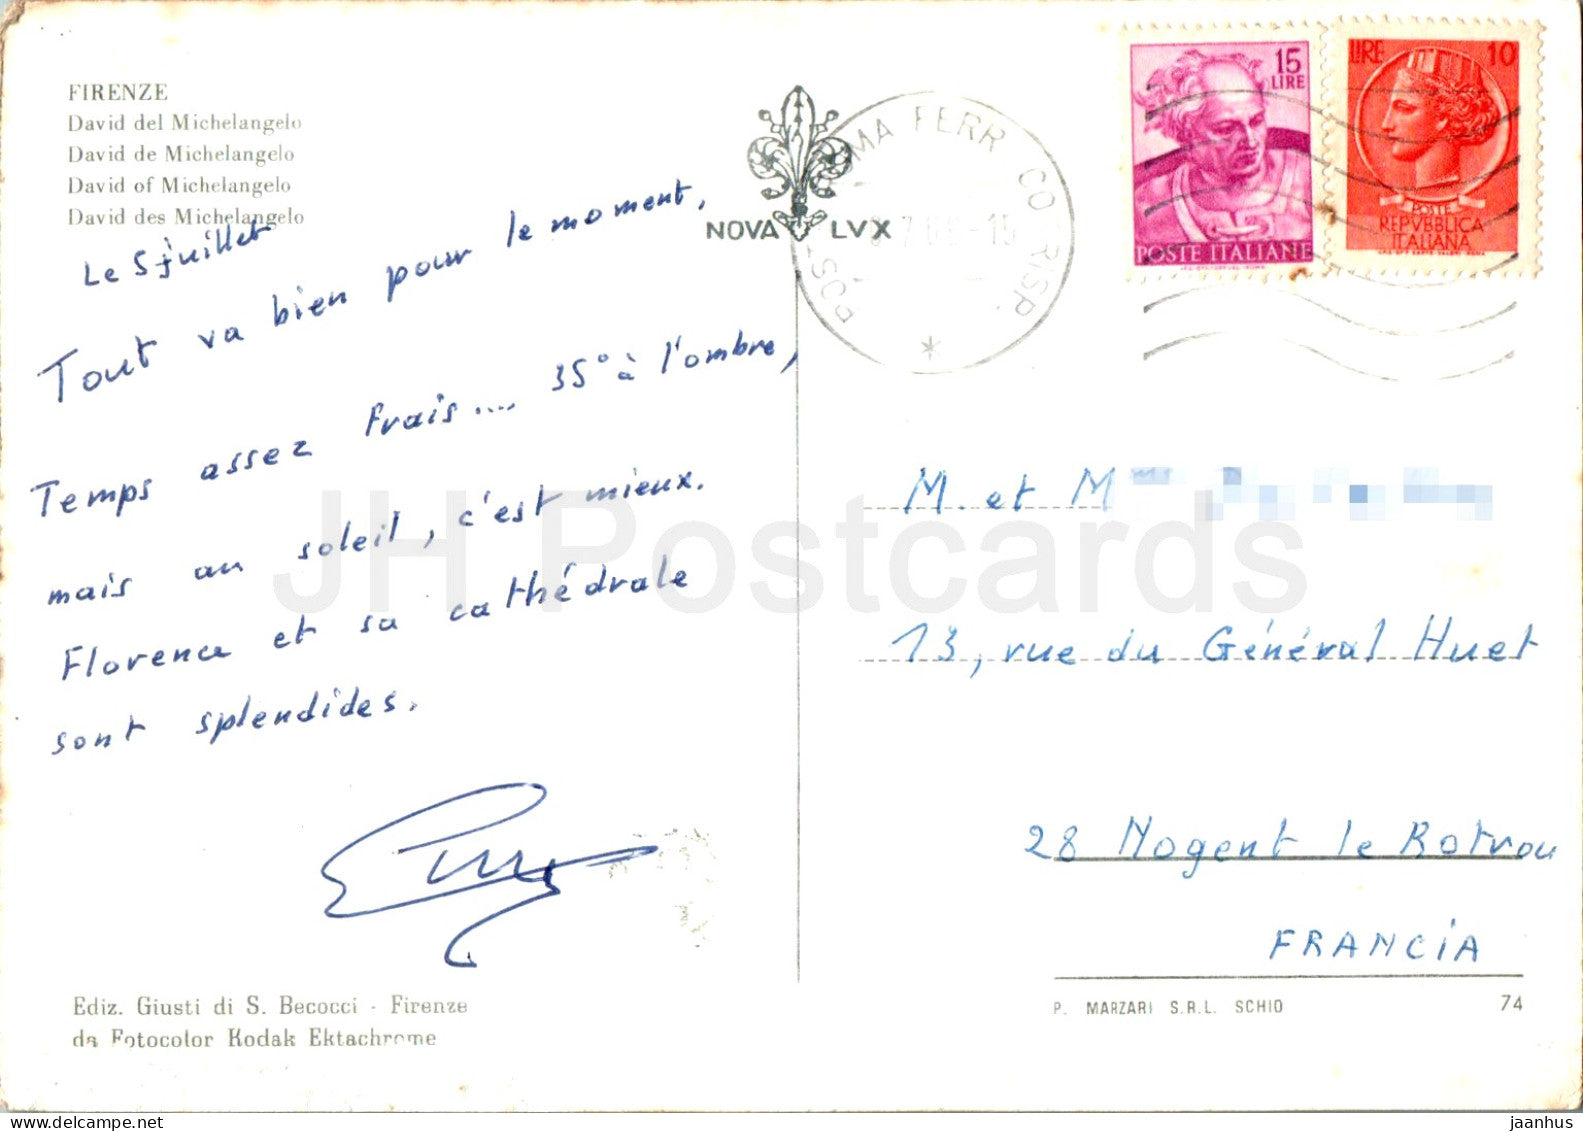 FIRENZE
David del Michelangelo
David de Michelangelo
David of Michelangelo
David des Michelangelo
Le 5 juillet
Tout va bien pour le moment,
Temps assez frais.... 35° à l'ombre,
mais au soleil, c'est mieux.
Florence et sa cathédrale
sont splendides.
Ediz. Giusti di S. Becocci - Firenze
da Fotocolor Kodak Ektachrome
NOVA LVX
MA FERR CORRISP.
15 LIRE
POSTE ITALIANE
LIRE 10
POSTE
REPVBBLICA
ITALIANA
M. et Mme
13, rue du Général Huet
28 Nogent le Rotrou
FRANCIA
P. MARZARI S.R.L. SCHIO 74
JH Postcards
jaanhus